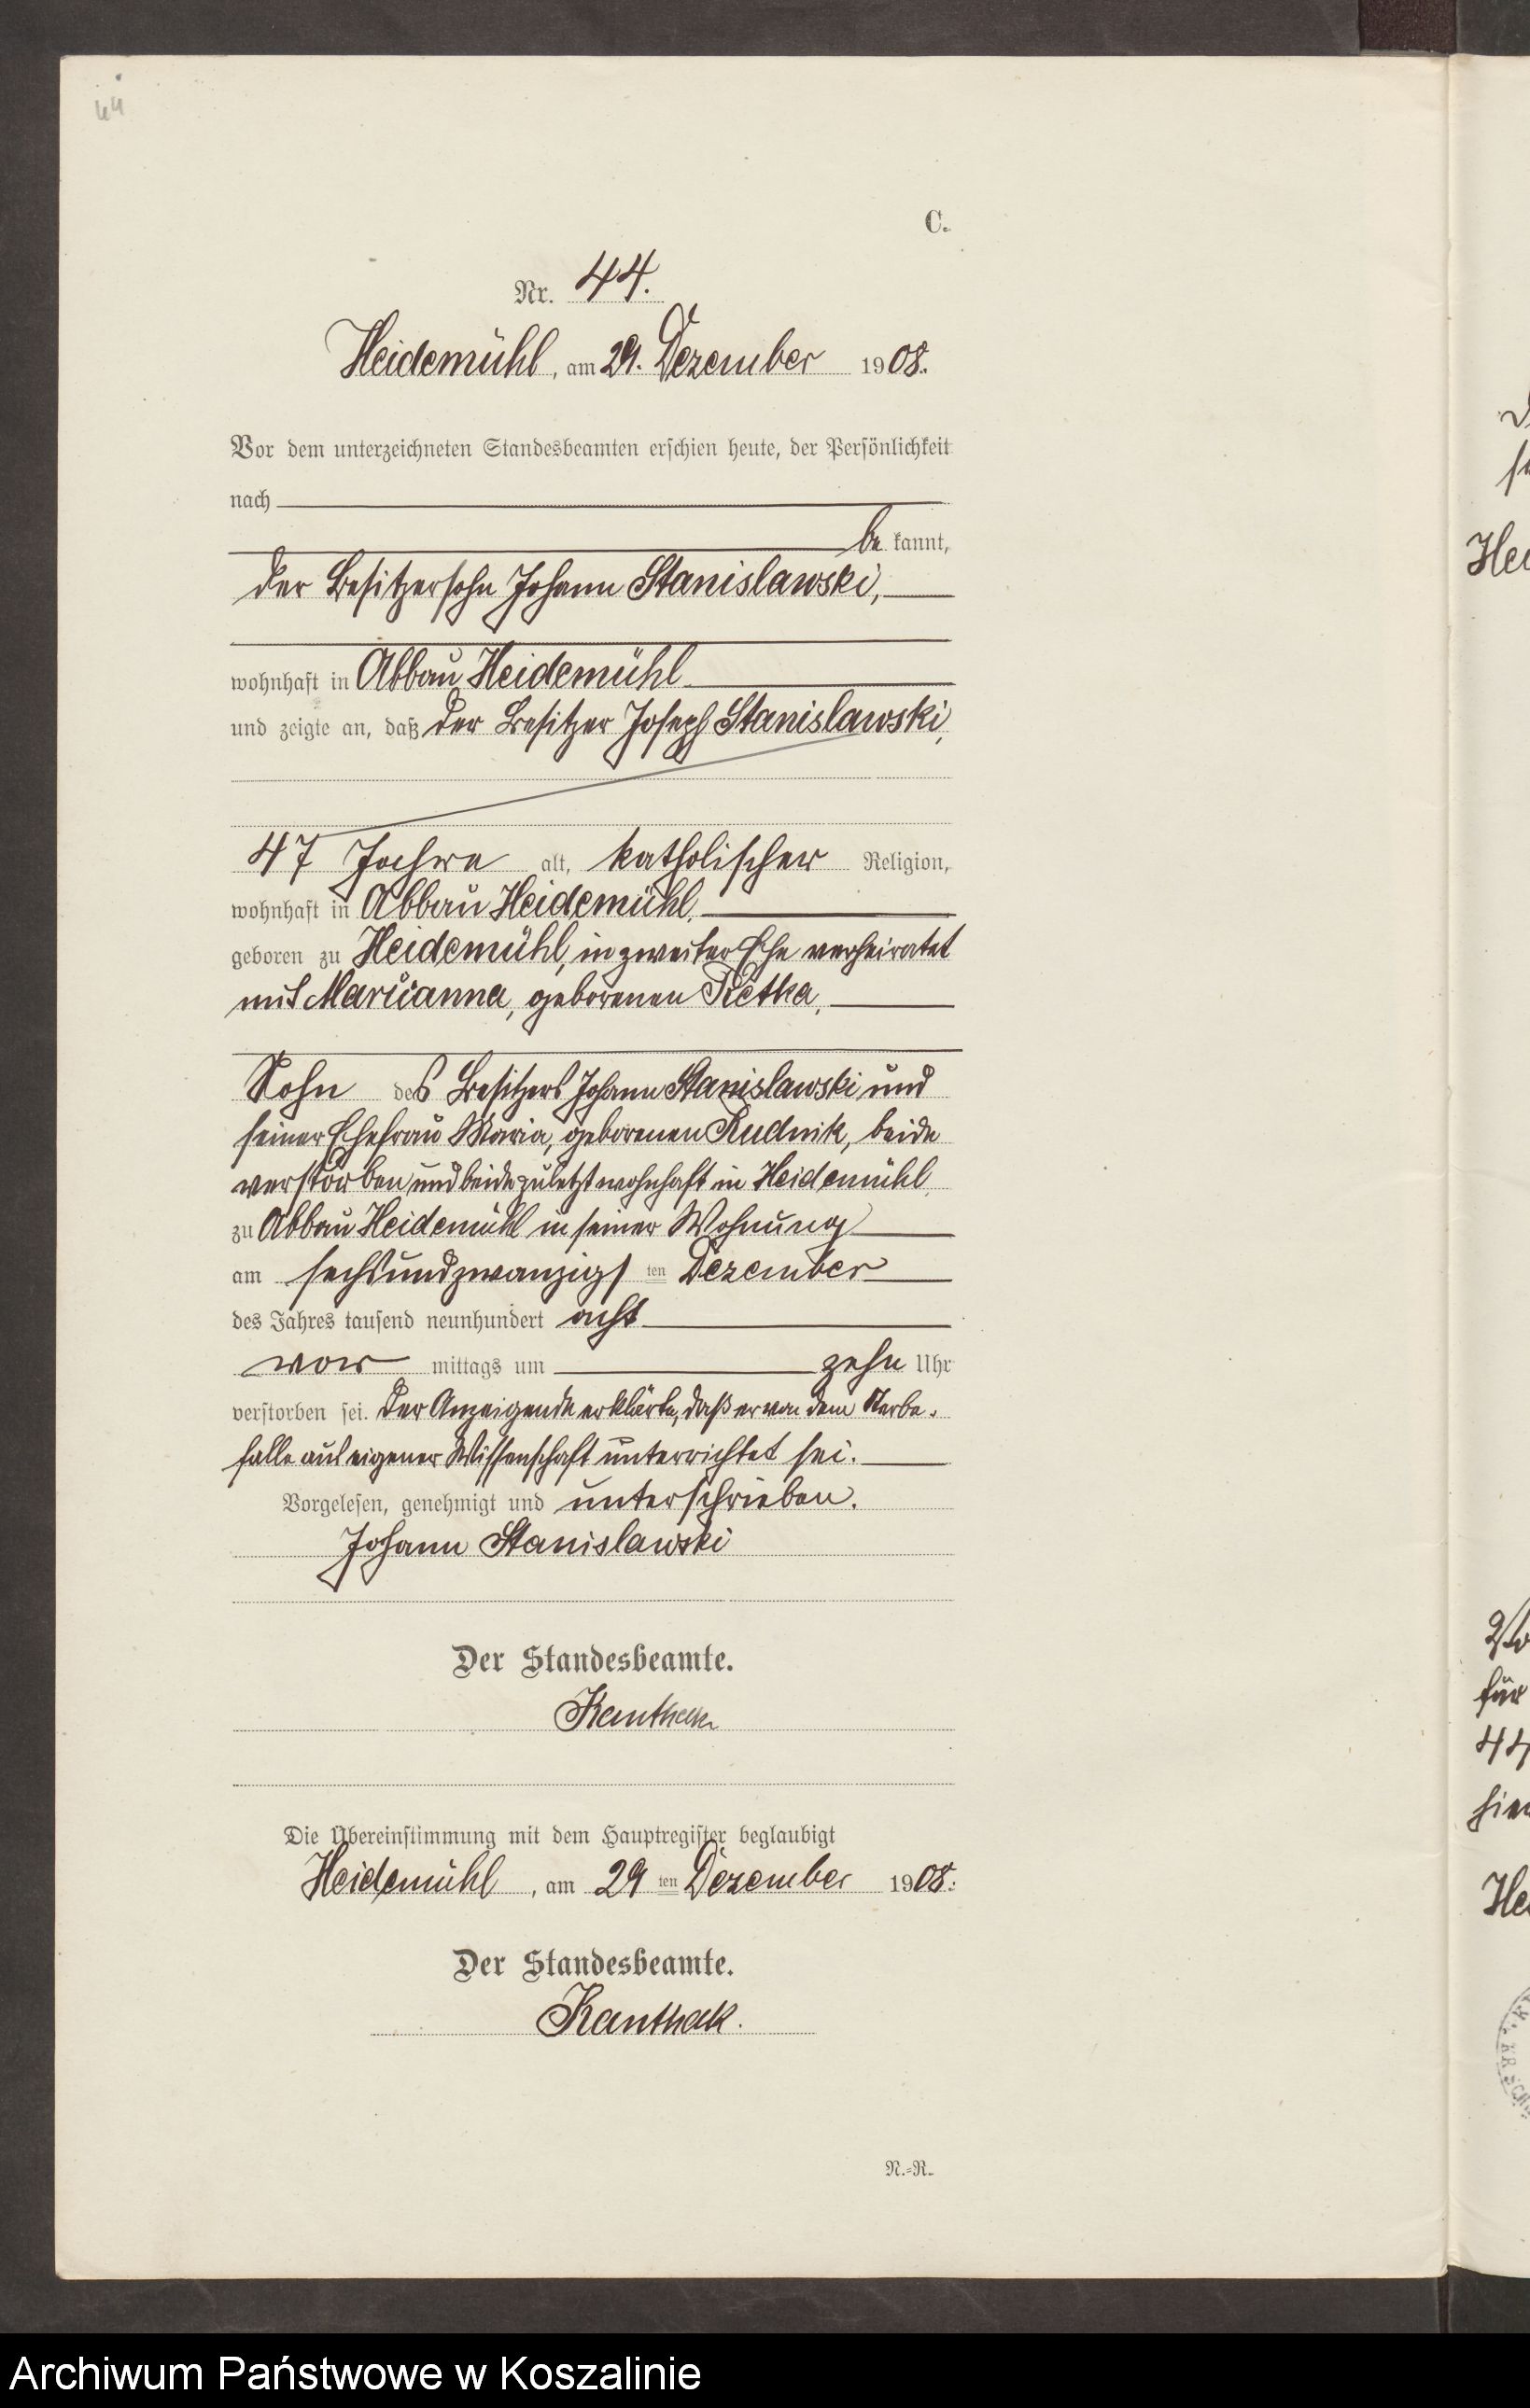 44
C.
Nr. 44.
Heidemühl, am 29. Dezember 1908.
Vor dem unterzeichneten Standesbeamten erschien heute, der Persönlichkeit
nach
be kannt,
der Besitzersohn Johann Stanislawski,
wohnhaft in Abbau Heidemühl
und zeigte an, daß der Besitzer Joseph Stanislawski,
47 Jahre alt, katholischer Religion,
wohnhaft in Abbau Heidemühl,
geboren zu Heidemühl, in zweiter Ehe verheiratet
mit Marianna, geborenen Retka,
Sohn des Besitzers Johann Stanislawski und
seiner Ehefrau Maria, geborenen Rudnik, beide
verstorben und beide zuletzt wohnhaft in Heidemühl,
zu Abbau Heidemühl in seiner Wohnung
am sechsundzwanzigs ten Dezember
des Jahres tausend neunhundert acht
vor mittags um zehn Uhr
verstorben sei. Der Anzeigende erklärte, daß er von dem Sterbe-
falle aus eigener Wissenschaft unterrichtet sei.
Vorgelesen, genehmigt und unterschrieben.
Johann Stanislawski
Der Standesbeamte.
Kanthak
Die Übereinstimmung mit dem Hauptregister beglaubigt
Heidemühl, am 29 ten Dezember 1908.
Der Standesbeamte.
Kanthak.
N.=R.
Hei
für
44
hier
He
Archiwum Państwowe w Koszalinie